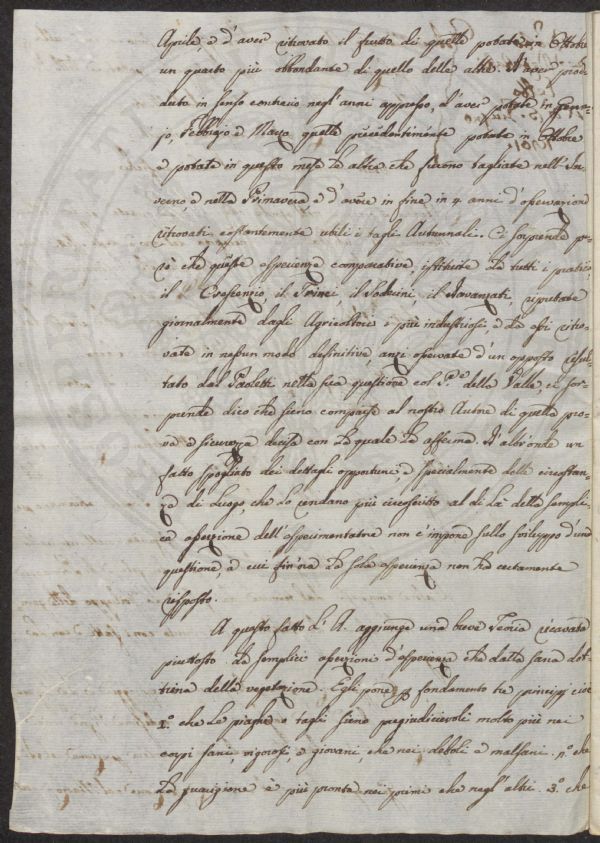 Aprile, e d'aver ritrovato il frutto di quelle potate in Ottobre
un quarto più abbondante di quello delle altre. D'aver proce-
duto in senso contrario negl'anni appresso, d'aver potate in Genna-
jo, Febbrajo e Marzo quelle precedentemente potate in Ottobre
e potate in questo mese le altre che furono tagliate nell'In-
verno, e nella Primavera e d'avere in fine in 4 anni d'osservazioni
ritrovati costantemente utili i tagli Autunnali. Ci sorprende pe-
rò che queste esperienze comparative, istituite da tutti i pratici,
il Crescenzio, il Trinci, il Soderini, il Davanzati, ripetute
giornalmente dagli Agricoltori i più industriosi, e da essi ritro-
vate in nessun modo definitive, anzi osservate d'un opposto resul-
tato dal Paoletti nella sua questione col P.e della Valle, ci sor-
prende dico che sieno comparse al nostro Autore di quella pro-
va e sicurezza decisa con la quale la afferma. D'altr'onde un
fatto spogliato dei dettagli opportuni, e specialmente delle circostan-
ze di luogo, che lo rendano più circoscritto al di là della sempli-
ce asserzione dell'esperimentatore non c'impone sullo sviluppo d'una
questione, a cui fin'ora la sola esperienza non ha certamente
risposto.
A questo fatto l'A. aggiunge una breve Teoria ricavata
piuttosto da semplici asserzioni d'esperienza che dalla sana dot-
trina della vegetazione. Egli pone p fondamento tre principj cioè
1.o che le piaghe e tagli sieno pregiudicievoli molto più nei
corpi sani, vigorosi, e giovani, che nei deboli e malsani. 2.o che
la guarigione è più pronta nei primi che negl'altri. 3.o che